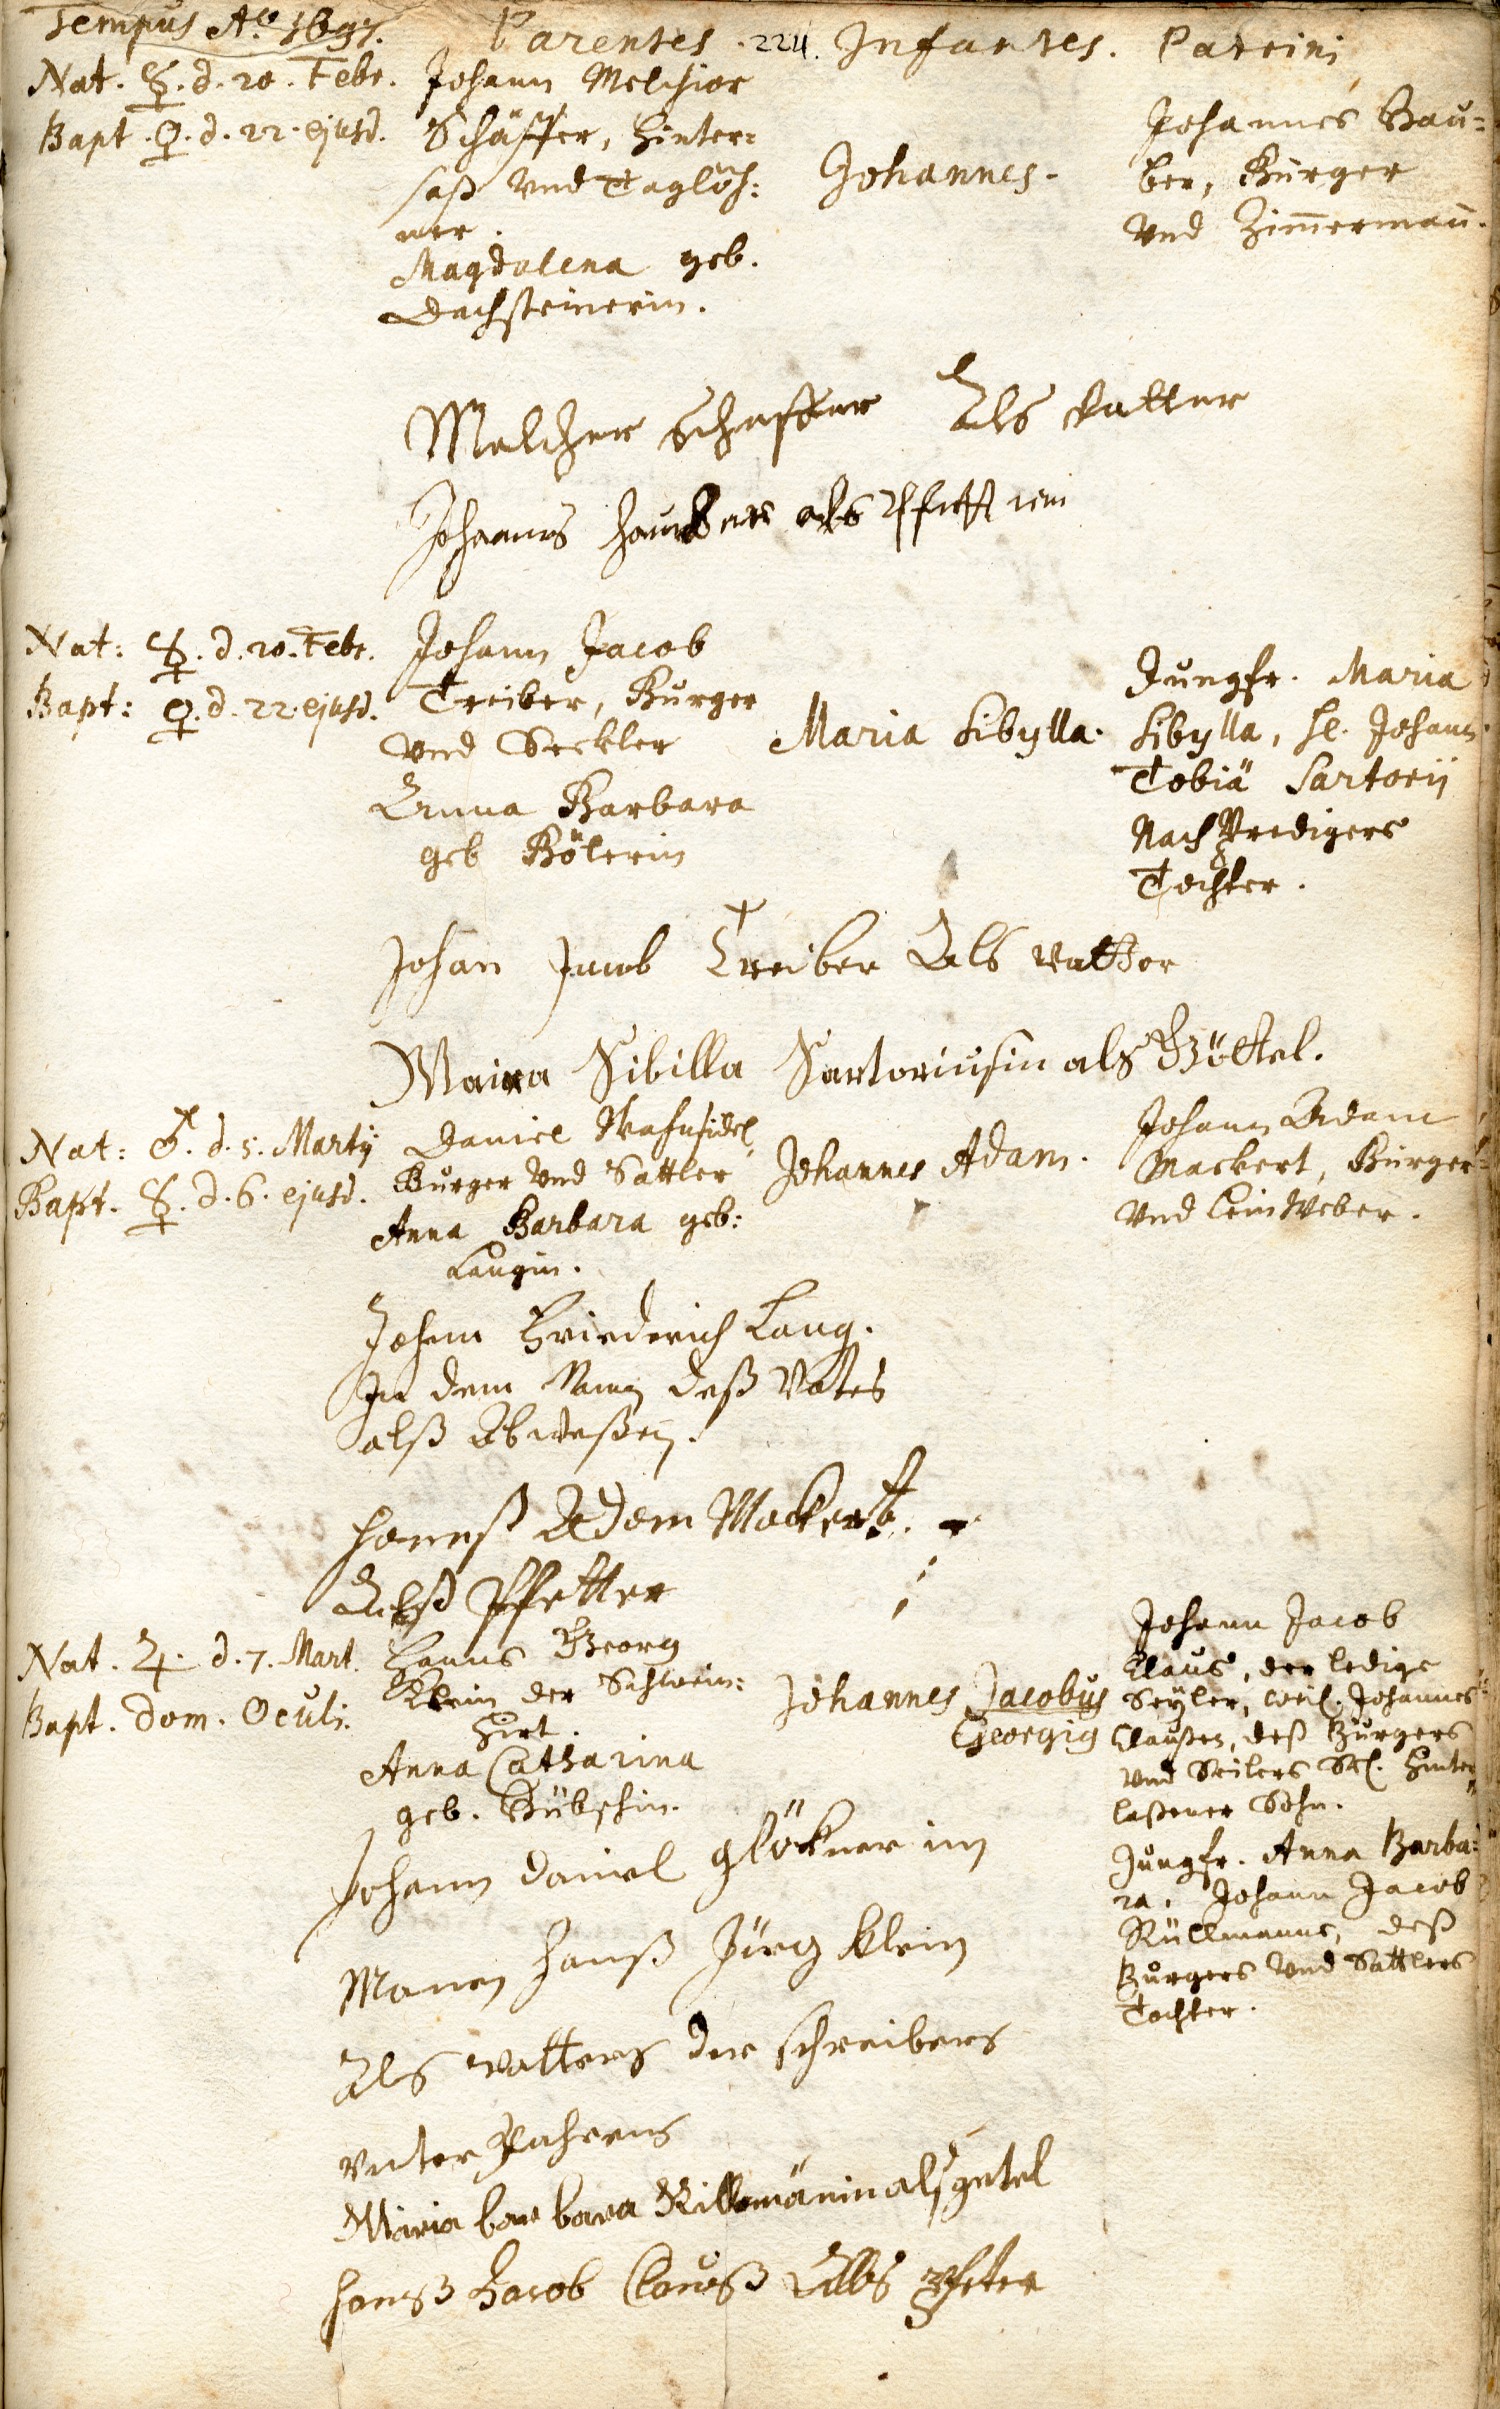 Tempus Aº. 1697. Parentes. 224. Infantes. Patrini
Nat. ☿. d. 20. Febr.
Bapt. ♀. d. 22. ejusd.
Johann Melchior
Schäffer, hinter=
saß Vnd Taglöh:
ner.
Magdalena geb.
Dachsteinerin.
Johannes.
Johannes Hau=
ber, Burger
Vnd Zim̄erman̄.
Melcher Schaffer Als Vatter
Johannes Hauber als Pfetter
Nat: ☿. d. 20. Febr.
Bapt: ♀. d. 22. ejusd.
Johann Jacob
Treiber, Burger
Vnd Seckler
Anna Barbara
geb Bölerin
Maria Sibylla.
Jungfr. Maria
Sibylla, H. Johann
Tobiä Sartorij
Nach Predigers
Tochter.
Johan Jacob Treiber Als vatter
Maira Sibilla Sartoriusin als Göttel.
Nat: ♂. d. 5. Martij
Bapt. ☿. d. 6. ejusd.
Daniel
Burger Vnd Sattler
Anna Barbara geb:
Langin.
Johannes Adam.
Johann Adam
Mackert, Burger
Vnd LeinWeber.
Johann Friederich Lang.
In dem Namen deß Vaters
alß Abweßen.
Hanneß Adam Mackert.
Alß Pfetter
Nat. ♃. d. 7. Mart.
Bapt. Dom. Oculi.
Hanns Georg
Klein der Schwein:
Hirt.
Anna Catharina
geb. Hübschin.
Johannes Jacobus
Georgig
Johann Jacob
Clauß, der ledige
Seyler, weil. Johannes
Claußen, deß Burgers
Vnd Seilers Sel. Hinter
laßener Sohn.
Jungfr. Anna Barba:
ra. Johann Jacob
Rüllmanns, deß
Burgers Vnd Sattlers
Tochter.
Johann Daniel glökner im
Namen Hanß Jürg Klein
Als vatters der schreibens
Vnter Fahrens
Maria barbara Rillmänin als getel
Hanß Jacob Clauß Als Pfeter